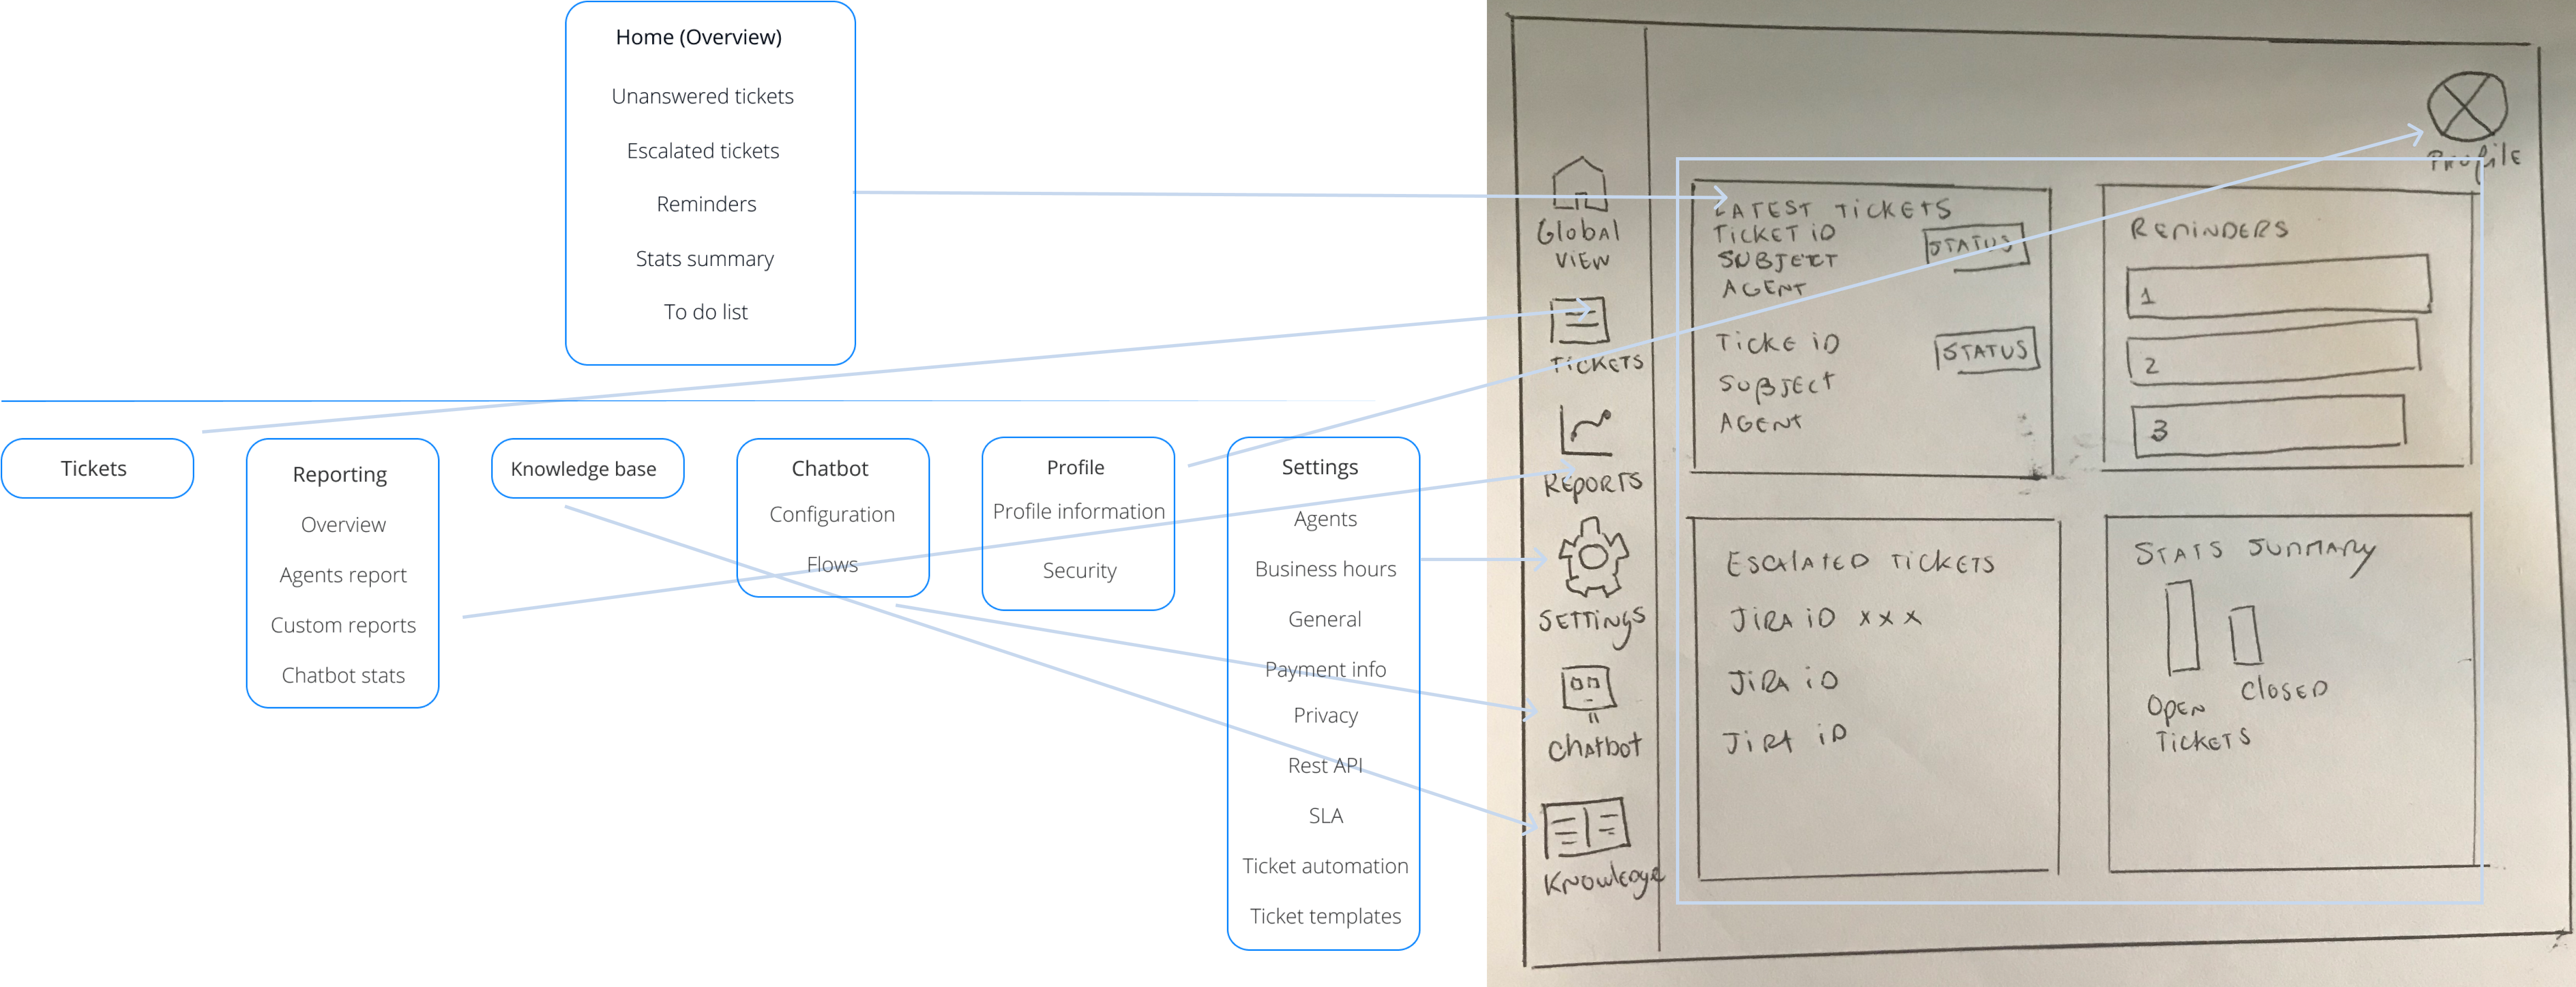 Home (Overview)
Unanswered tickets
Escalated tickets
Reminders
Stats summary
To do list
Tickets
Reporting
Overview
Agents report
Custom reports
Chatbot stats
Knowledge base
Chatbot
Configuration
Flows
Profile
Profile information
Security
Settings
Agents
Business hours
General
Payment info
Privacy
Rest API
SLA
Ticket automation
Ticket templates
Profile
Global
View
Tickets
Reports
Settings
Chatbot
Knowledge
LATEST TICKETS
TICKET ID
SUBJECT
AGENT
STATUS
TICKE ID
SUBJECT
AGENT
STATUS
REMINDERS
1
2
3
ESCALATED TICKETS
JIRA ID x x x
JIRA ID
JIRA ID
STATS SUMMARY
OPEN
TICKETS
CLOSED